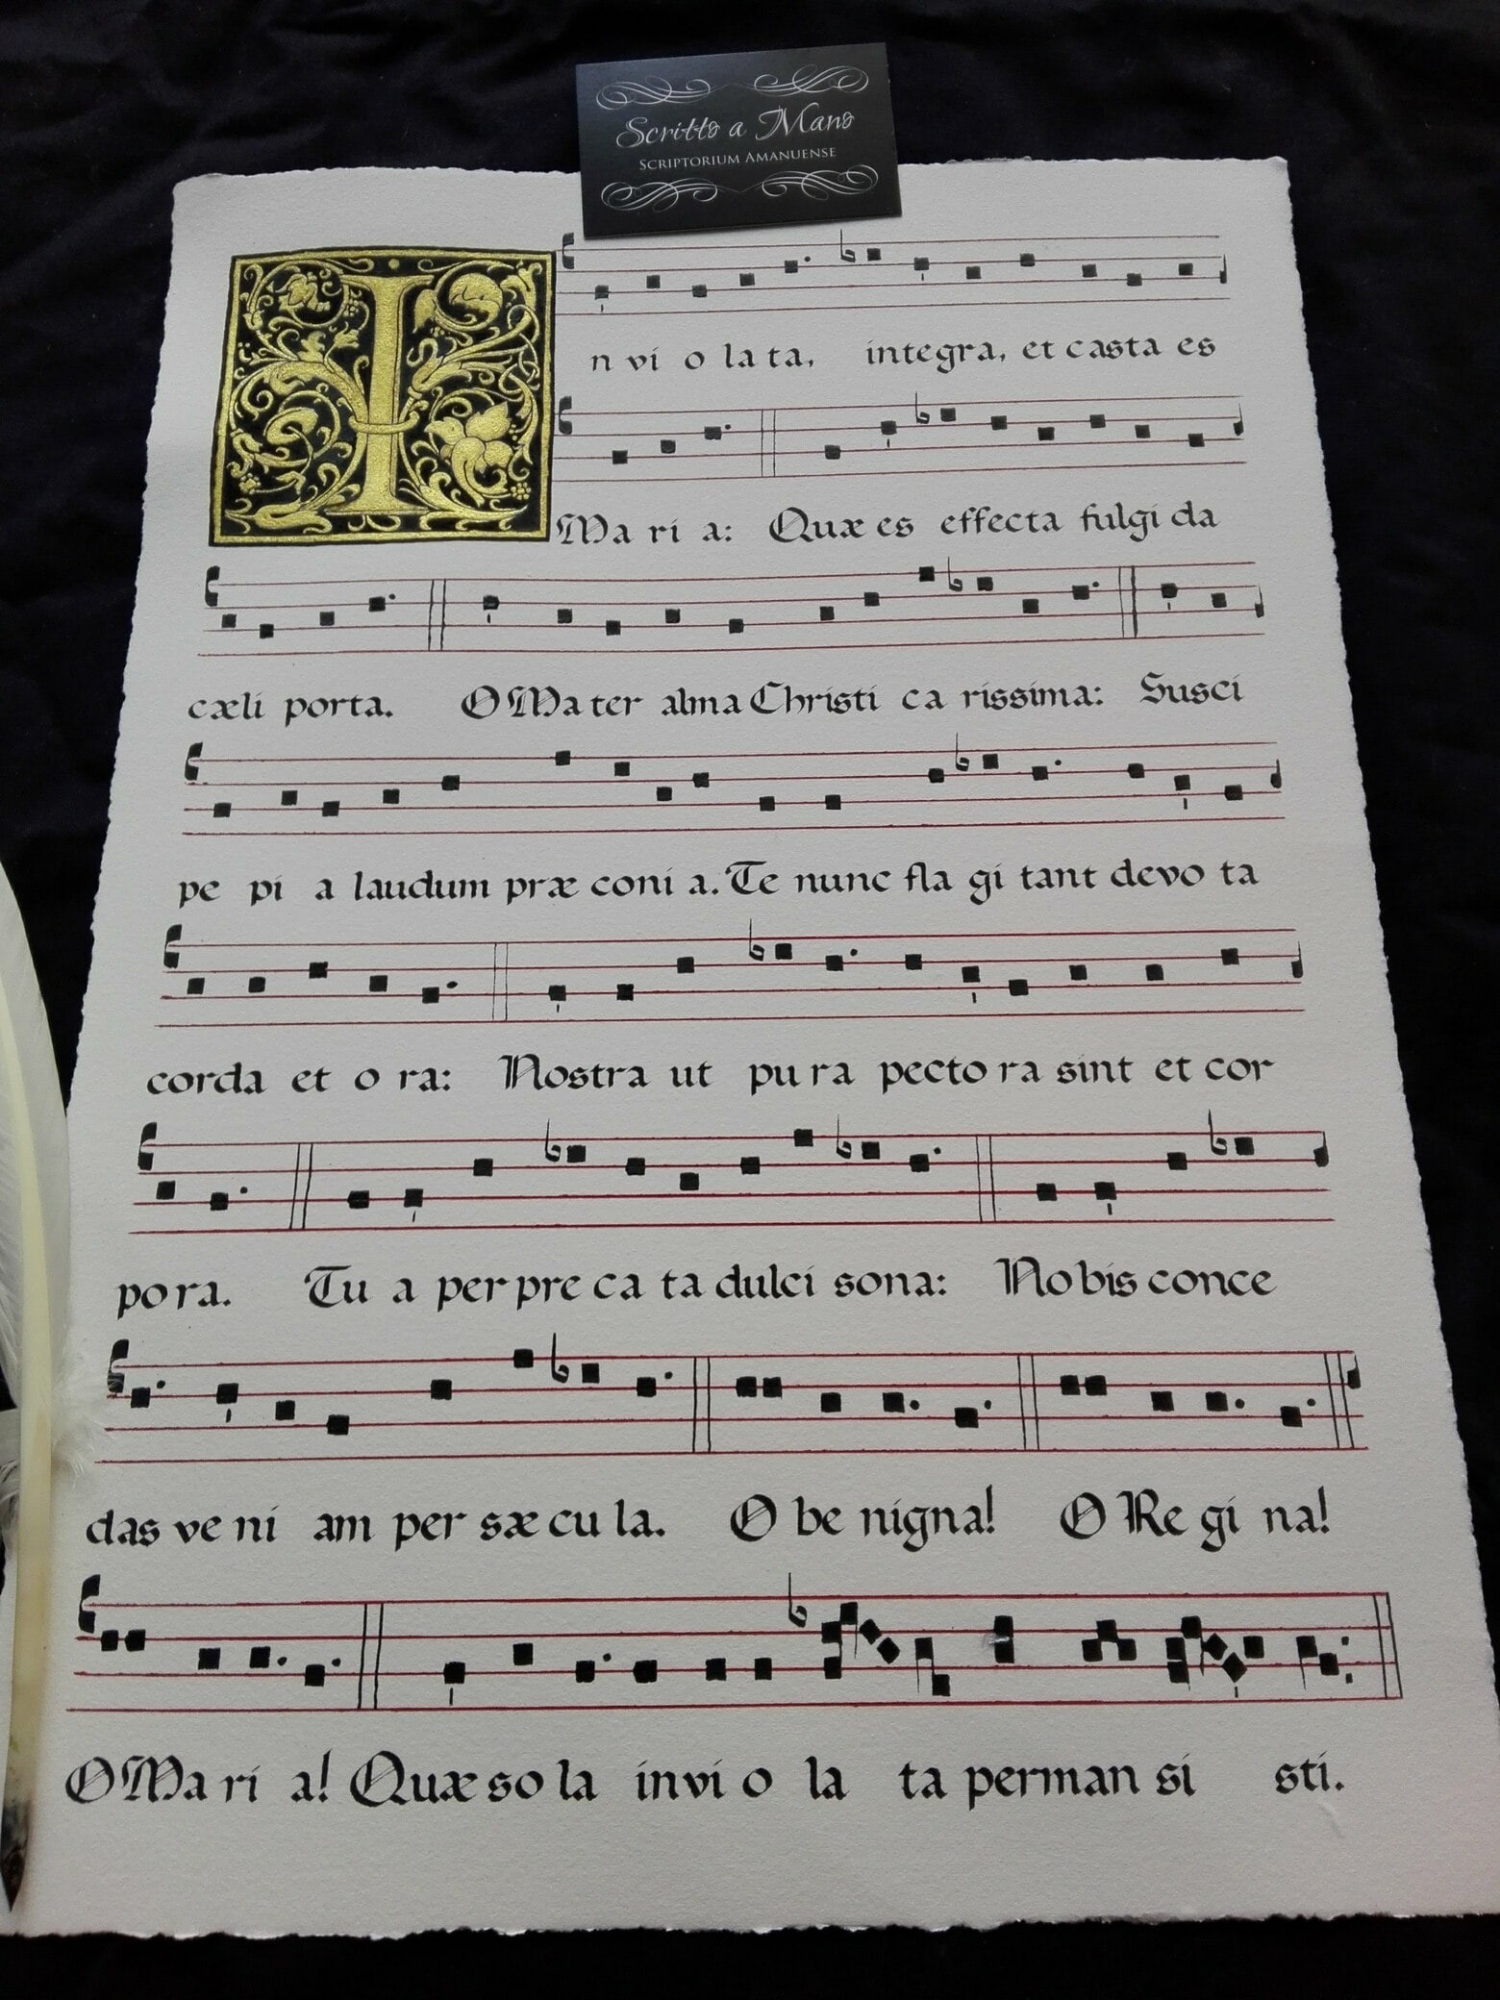 Scritto a Mano
SCRIPTORIUM AMANUENSE
In vi o la ta, integra, et casta es
Ma ri a: Quæ es effecta fulgi da
cæli porta. O Ma ter alma Christi ca rissima: Susci
pe pi a laudum præ coni a. Te nunc fla gi tant devo ta
corda et o ra: Nostra ut pu ra pecto ra sint et cor
po ra. Tu a per pre ca ta dulci sona: No bis conce
das ve ni am per sæ cu la. O be nigna! O Re gi na!
O Ma ri a! Quæ so la invi o la ta perman si sti.